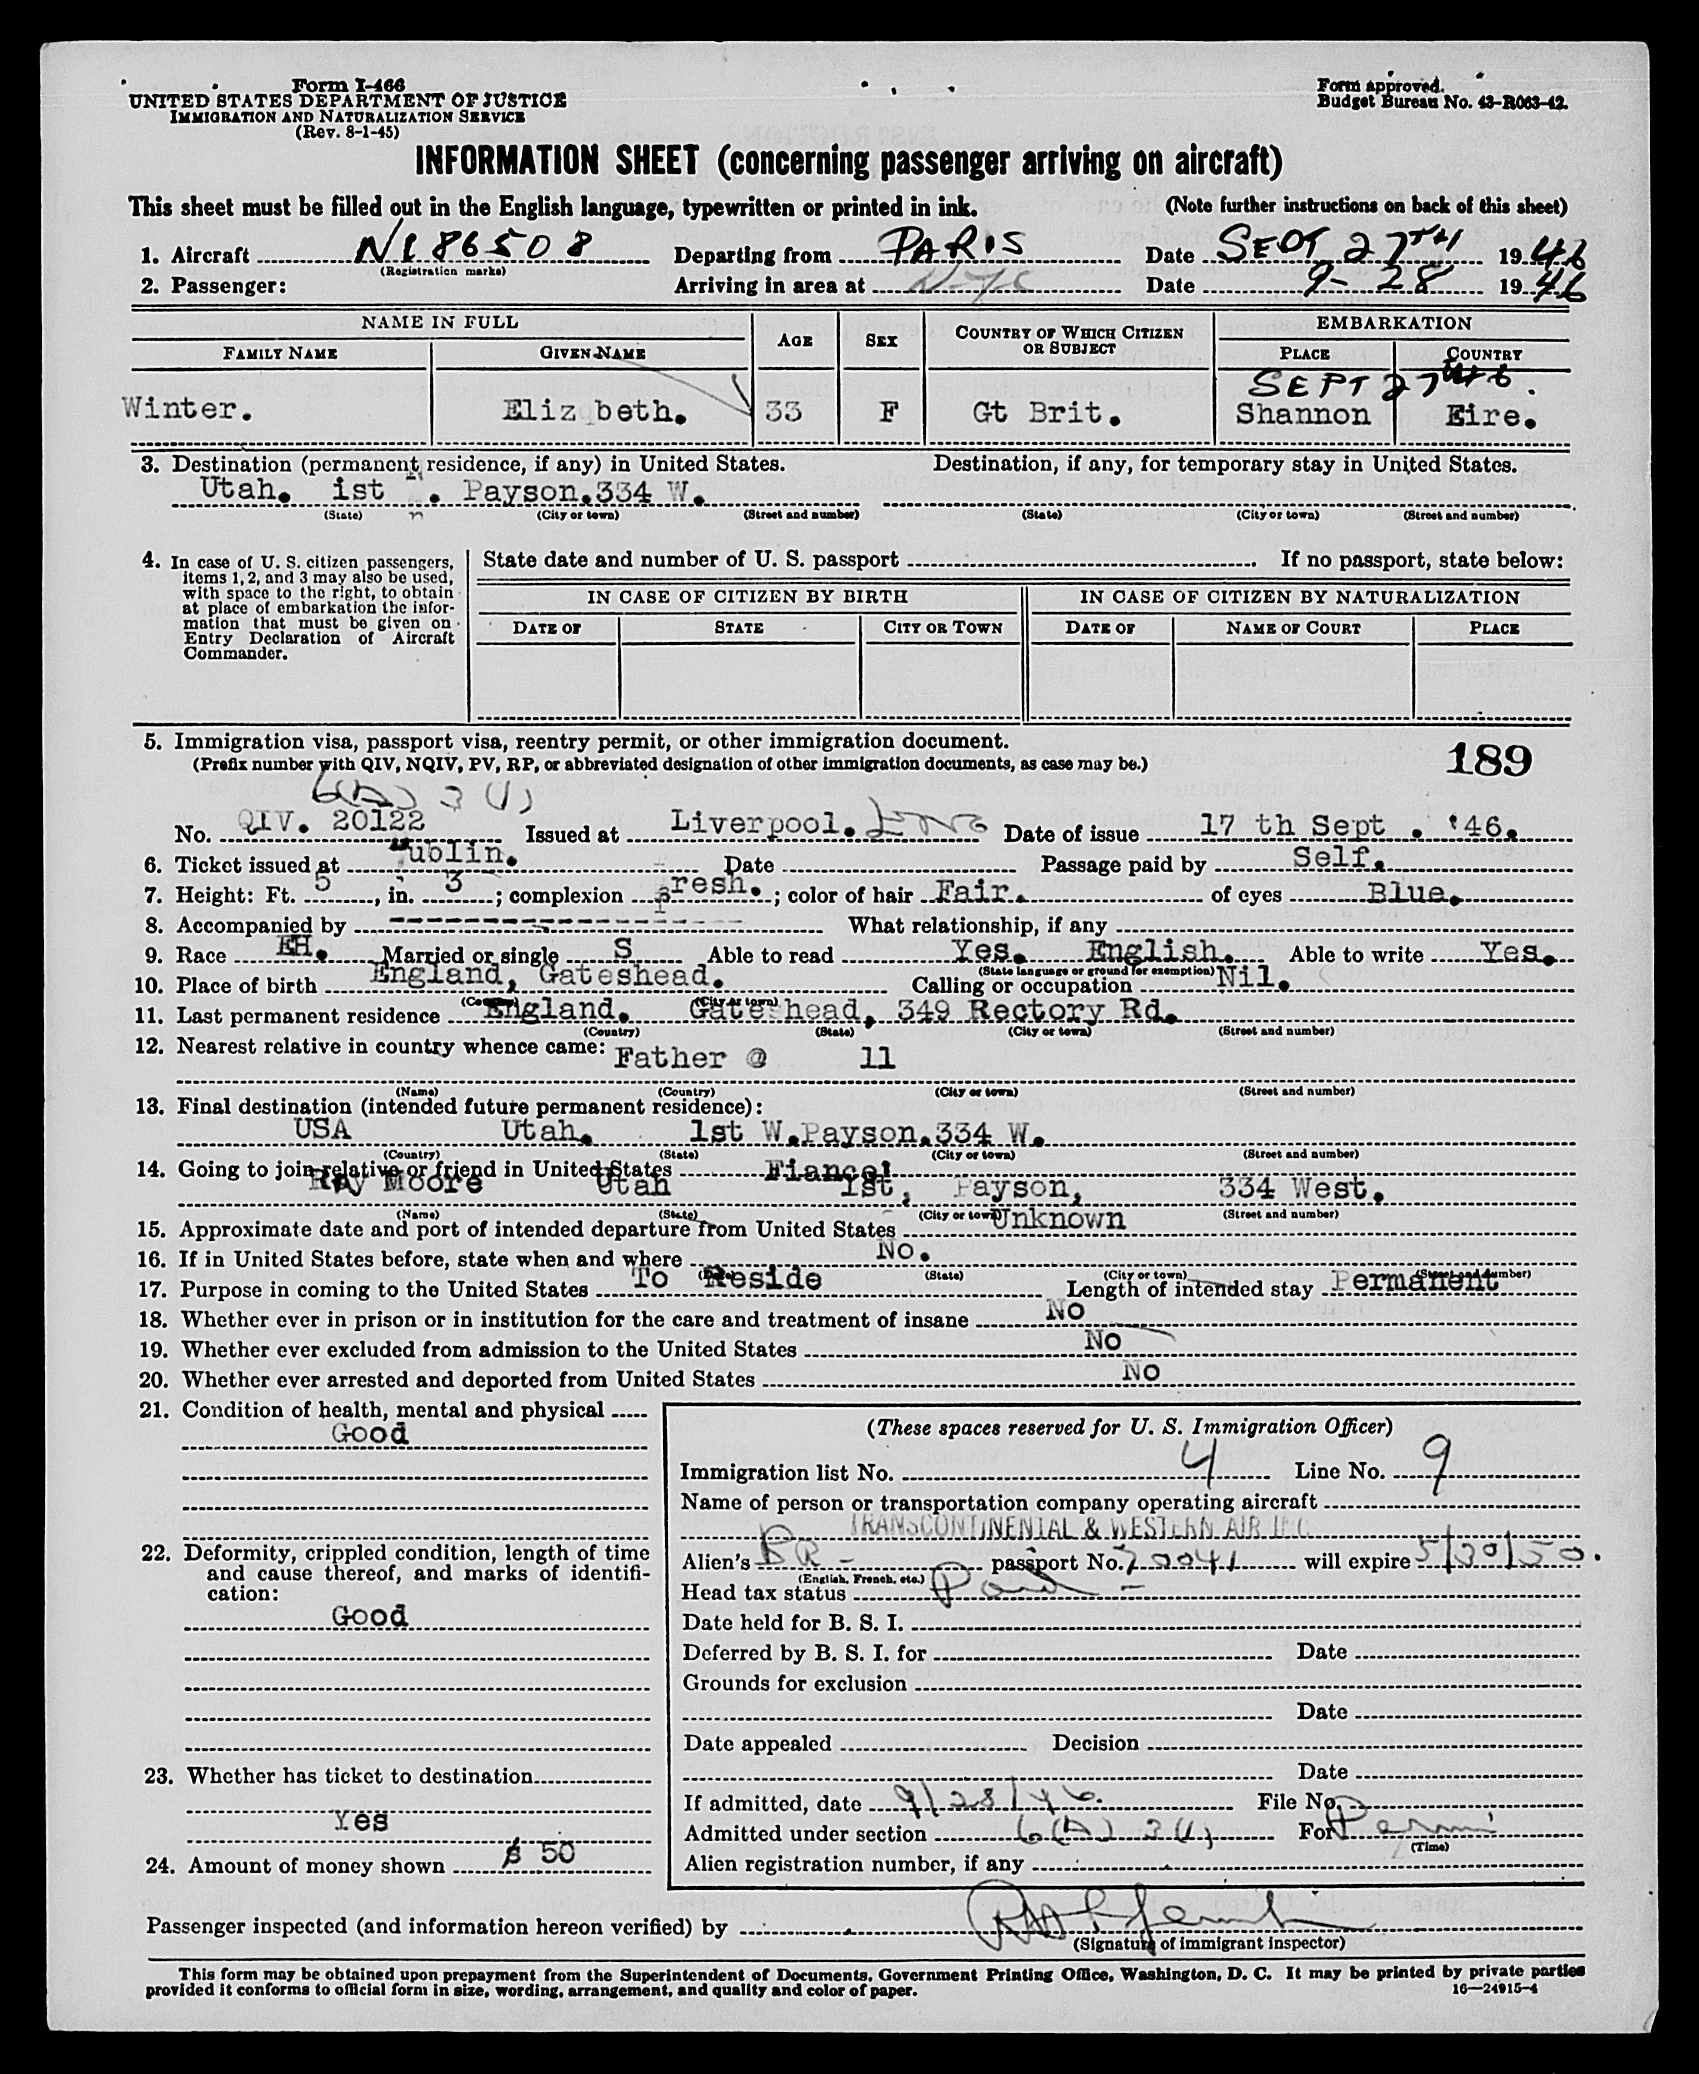 Form I-466
UNITED STATES DEPARTMENT OF JUSTICE
IMMIGRATION AND NATURALIZATION SERVICE
(Rev. 8-1-45)
Form approved.
Budget Bureau No. 43-R063-42.
INFORMATION SHEET (concerning passenger arriving on aircraft)
This sheet must be filled out in the English language, typewritten or printed in ink. (Note further instructions on back of this sheet)
1. Aircraft NC86508 Departing from PARIS Date SEPT 27TH 1946
(Registration marks)
2. Passenger: Arriving in area at NYC Date 9-28 1946
NAME IN FULL AGE SEX COUNTRY OF WHICH CITIZEN OR SUBJECT EMBARKATION
FAMILY NAME GIVEN NAME PLACE COUNTRY
SEPT 27 46.
Winter. Eliz beth. 33 F Gt Brit. Shannon Eire.
3. Destination (permanent residence, if any) in United States. Destination, if any, for temporary stay in United States.
Utah. 1st . Payson.334 W.
(State) (City or town) (Street and number) (State) (City or town) (Street and number)
4. In case of U. S. citizen passengers, items 1, 2, and 3 may also be used, with space to the right, to obtain at place of embarkation the information that must be given on Entry Declaration of Aircraft Commander.
State date and number of U. S. passport . If no passport, state below:
IN CASE OF CITIZEN BY BIRTH IN CASE OF CITIZEN BY NATURALIZATION
DATE OF STATE CITY OR TOWN DATE OF NAME OF COURT PLACE
5. Immigration visa, passport visa, reentry permit, or other immigration document.
(Prefix number with QIV, NQIV, PV, RP, or abbreviated designation of other immigration documents, as case may be.)
189
6(A) 3 (1)
No. QIV. 20122 Issued at Liverpool. Eng Date of issue 17 th Sept . '46.
6. Ticket issued at Dublin. Date Passage paid by Self.
7. Height: Ft. 5, in. 3; complexion fresh.; color of hair Fair. of eyes Blue.
8. Accompanied by ---------------- What relationship, if any
9. Race EH. Married or single S Able to read Yes. English. Able to write Yes.
(State language or ground for exemption)
10. Place of birth England, Gateshead. Calling or occupation Nil.
(Country) (City or town)
11. Last permanent residence England. Gateshead, 349 Rectory Rd.
(Country) (State) (City or town) (Street and number)
12. Nearest relative in country whence came: Father @ 11
(Name) (Country) (City or town) (Street and number)
13. Final destination (intended future permanent residence):
USA Utah. 1st W.Payson.334 W.
(Country) (State) (City or town) (Street and number)
14. Going to join relative or friend in United States Fiance'
Ray Moore Utah 1st, Payson, 334 West.
(Name) (State) (City or town) (Street and number)
15. Approximate date and port of intended departure from United States Unknown
16. If in United States before, state when and where No.
(Date) (State) (City or town) (Street and number)
17. Purpose in coming to the United States To Reside Length of intended stay Permanent
18. Whether ever in prison or in institution for the care and treatment of insane No
19. Whether ever excluded from admission to the United States No
20. Whether ever arrested and deported from United States No
21. Condition of health, mental and physical
Good
22. Deformity, crippled condition, length of time and cause thereof, and marks of identification:
Good
23. Whether has ticket to destination
Yes
24. Amount of money shown $ 50
(These spaces reserved for U. S. Immigration Officer)
Immigration list No. 4 Line No. 9
Name of person or transportation company operating aircraft
TRANSCONTINENTAL & WESTERN AIR INC.
Alien's BR - passport No. 20041 will expire 5/30/50.
(English, French, etc.)
Head tax status Paid -
Date held for B. S. I.
Deferred by B. S. I. for Date
Grounds for exclusion
Date
Date appealed Decision
Date
If admitted, date 9/28/46. File No.
Admitted under section 6(A) 3(1) For Perm
(Time)
Alien registration number, if any
Passenger inspected (and information hereon verified) by
(Signature of immigrant inspector)
This form may be obtained upon prepayment from the Superintendent of Documents, Government Printing Office, Washington, D. C. It may be printed by private parties
provided it conforms to official form in size, wording, arrangement, and quality and color of paper.
16—24915-4